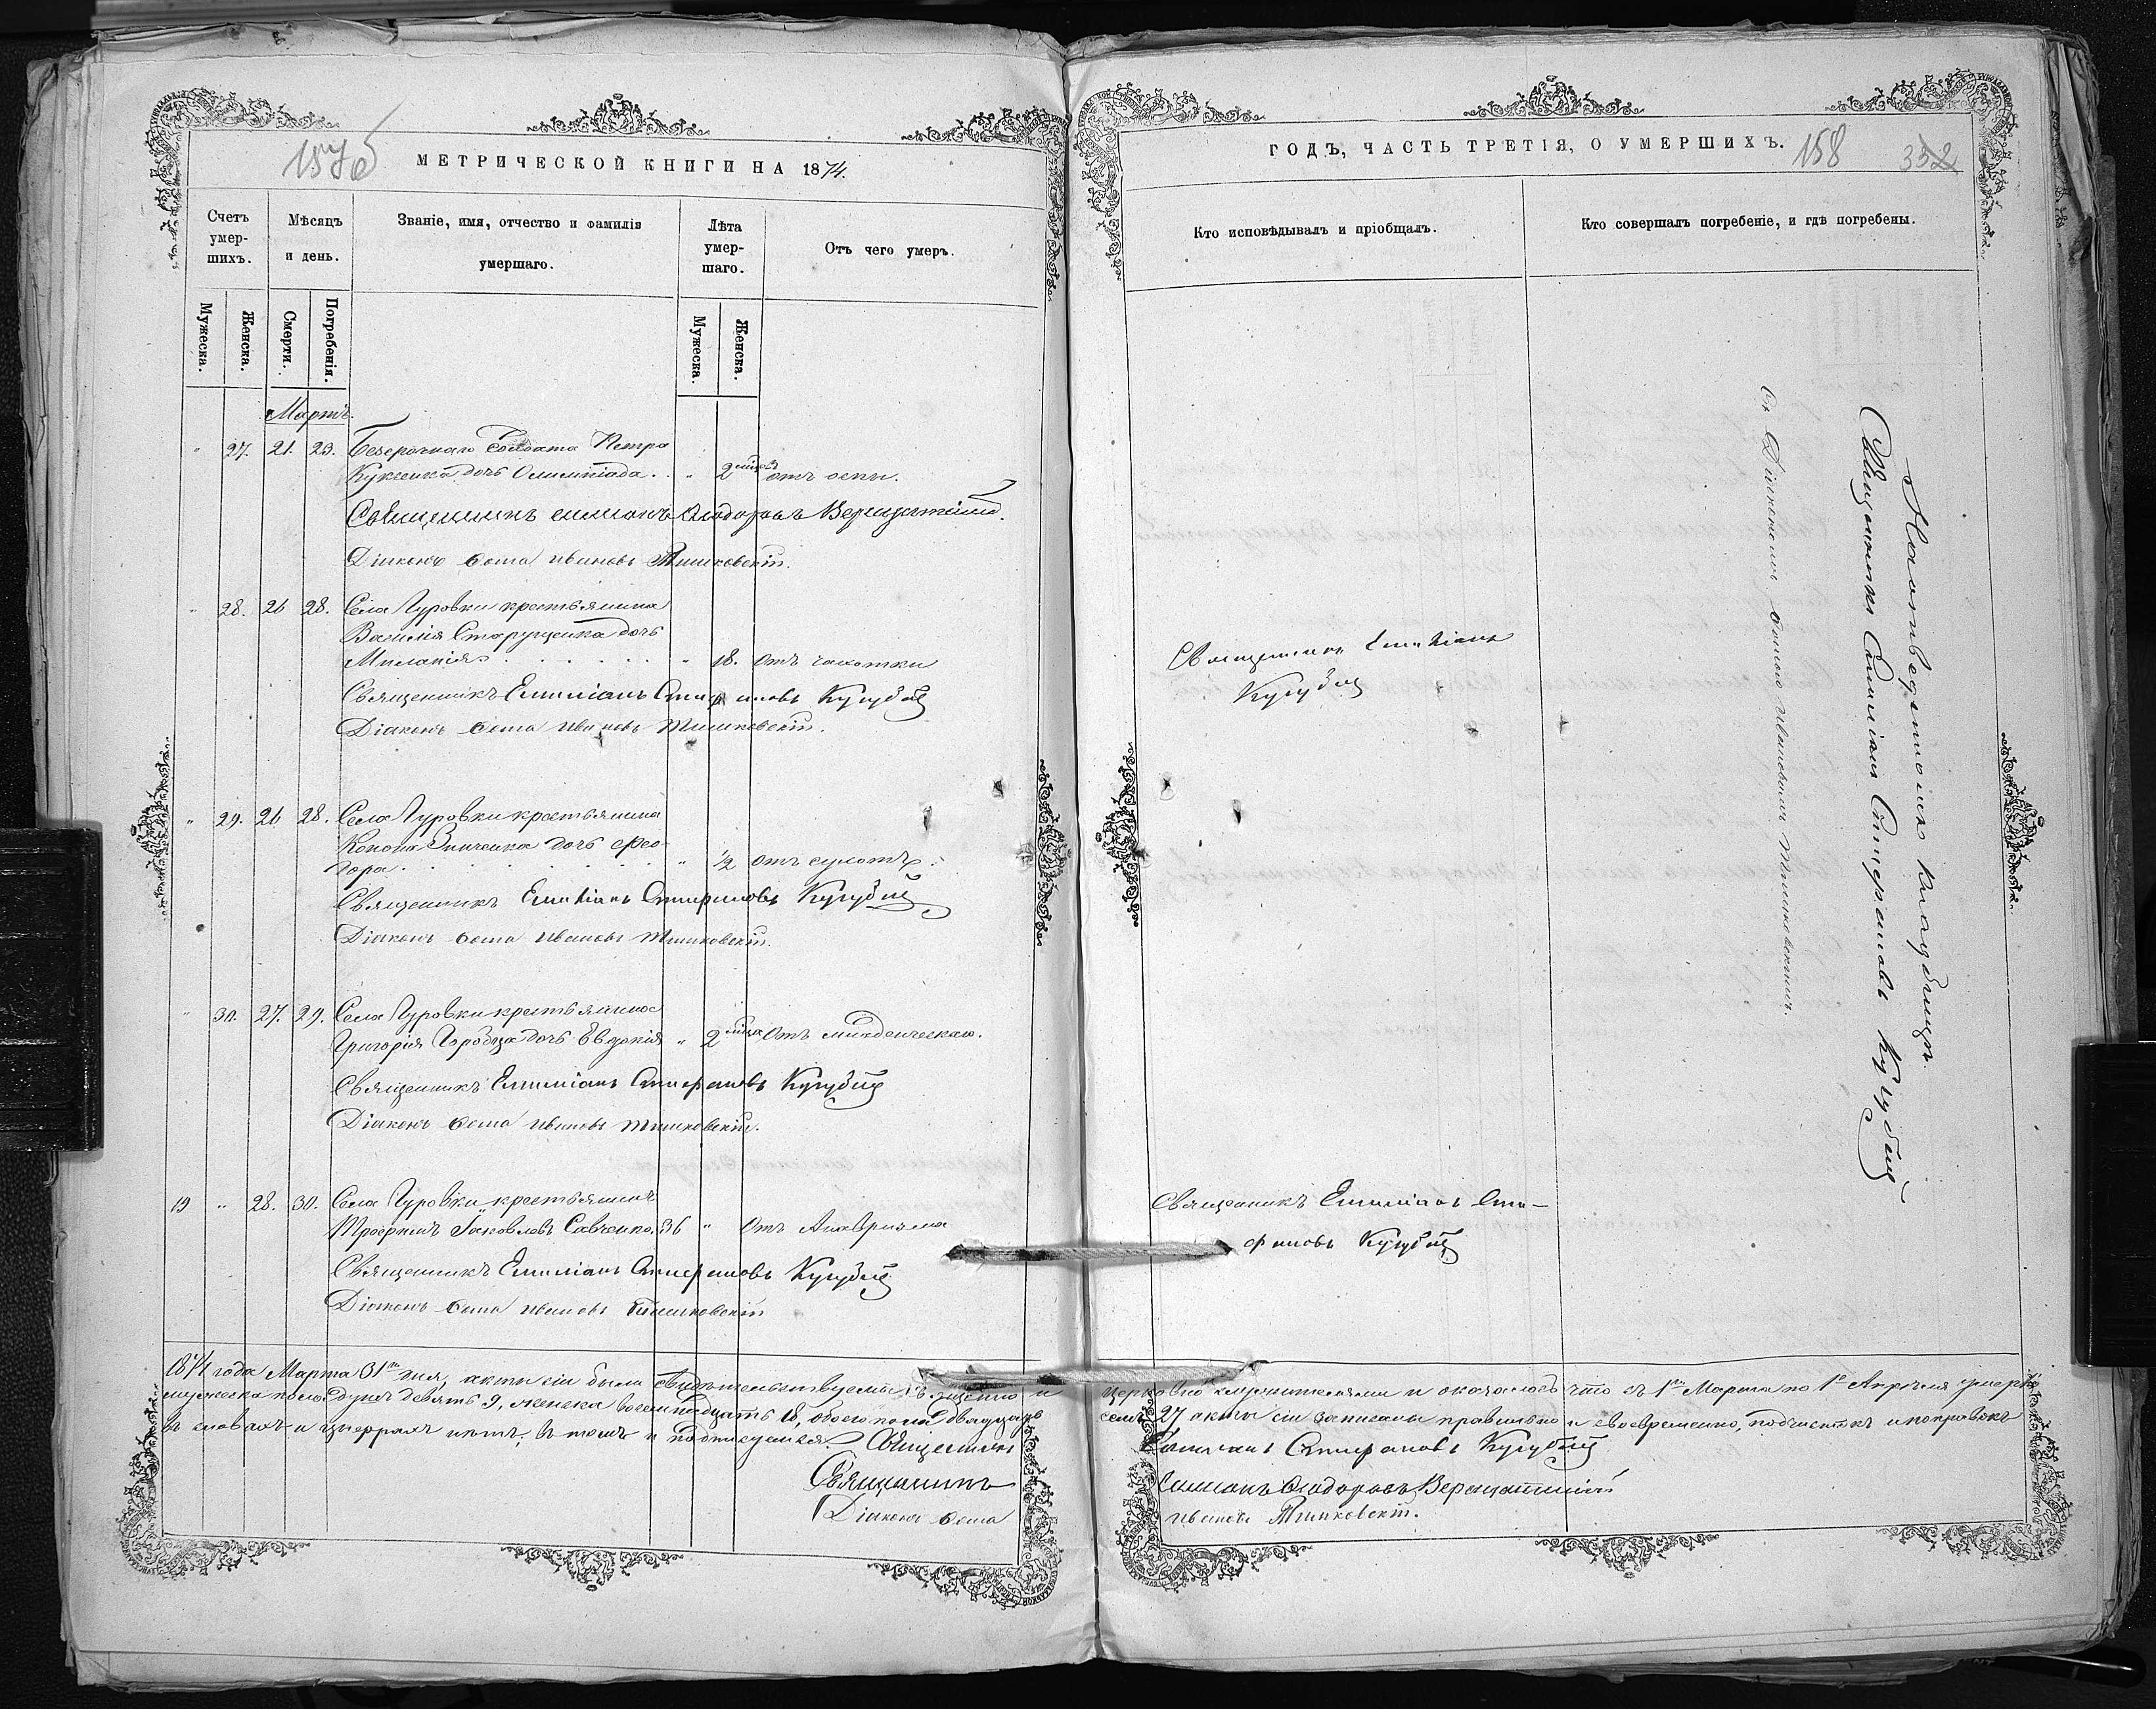 157об
МЕТРИЧЕСКОЙ КНИГИ НА 1874.
Счетъ умер- шихъ.
Мѣсяцъ и день.
Званіе, имя, отчество и фамилія умершаго.
Лѣта умер- шаго.
Отъ чего умеръ.
Мужеска.
Женска.
Смерти.
Погребенія.
Мужеска.
Женска.
Мартъ.
" 27. 21. 23. Безсрочнаго Солдата Петра
Куксенка дочь Олимпіада. . " 2 мѣсяц отъ оспы.
Священникъ Симеонъ Ѳеодоровъ
Діаконъ Ѳома Ивановъ Тишковскій.
" 28. 26 28. Села Гуровки крестьянина
Василія Старущенка дочь
Миланія . . . . . . " 18. Отъ чахотки
Священникъ Емиліанъ Стефановъ Кугубій
Діаконъ Ѳома Ивановъ Тишковскій.
" 29. 26 28. Села Гуровки крестьянина
Конона Зинченка дочь Ѳео-
дора . . . . . . " 1/2 Отъ сухотъ.
Священникъ Емиліанъ Стефановъ Кугубій
Діаконъ Ѳома Ивановъ Тишковскій.
" 30. 27. 29. Села Гуровки крестьянина
Григорія Горобца дочь Евдокія " 2 мѣсяц Отъ младенческаго.
Священникъ Емиліанъ Стефановъ Кугубій
Діаконъ Ѳома Ивановъ Тишковскій.
19 " 28. 30. Села Гуровки крестьянинъ
Трофимъ Іаковлевъ Савченко. 36 " Отъ Аневризма
Священникъ Емиліанъ Стефановъ Кугубій
Діаконъ Ѳома Ивановъ Тишковскій
1874 года Марта 31го дня, акты сіи были свидѣтельствуемы священно и
мужеска пола душъ девять 9, женска восемнадцать 18, обоего пола двадцать
въ словахъ и цыфрахъ нѣтъ; въ томъ и подписуемся. Священникъ
Священникъ
Діаконъ Ѳома
ГОДЪ, ЧАСТЬ ТРЕТІЯ, О УМЕРШИХЪ.
158
352
Кто исповѣдывалъ и пріобщалъ.
Кто совершалъ погребеніе, и гдѣ погребены.
Священникъ Емиліанъ
Кугубій
Священникъ Емиліанъ Сте-
фановъ Кугубій
На отведенномъ кладбищѣ.
Священникъ Емиліанъ Стефановъ Кугубій
Съ Діакономъ Ѳомою Ивановымъ Тишковскимъ.
церковно служителями и оказалось что съ 1го Марта по 1е Апрѣля умерло
семь 27 акты сіи записаны правильно и своевременно, подчистокъ и поправокъ
Емиліанъ Стефановъ Кугубій
Симеонъ Ѳеодоровъ
Ивановъ Тишковскій.